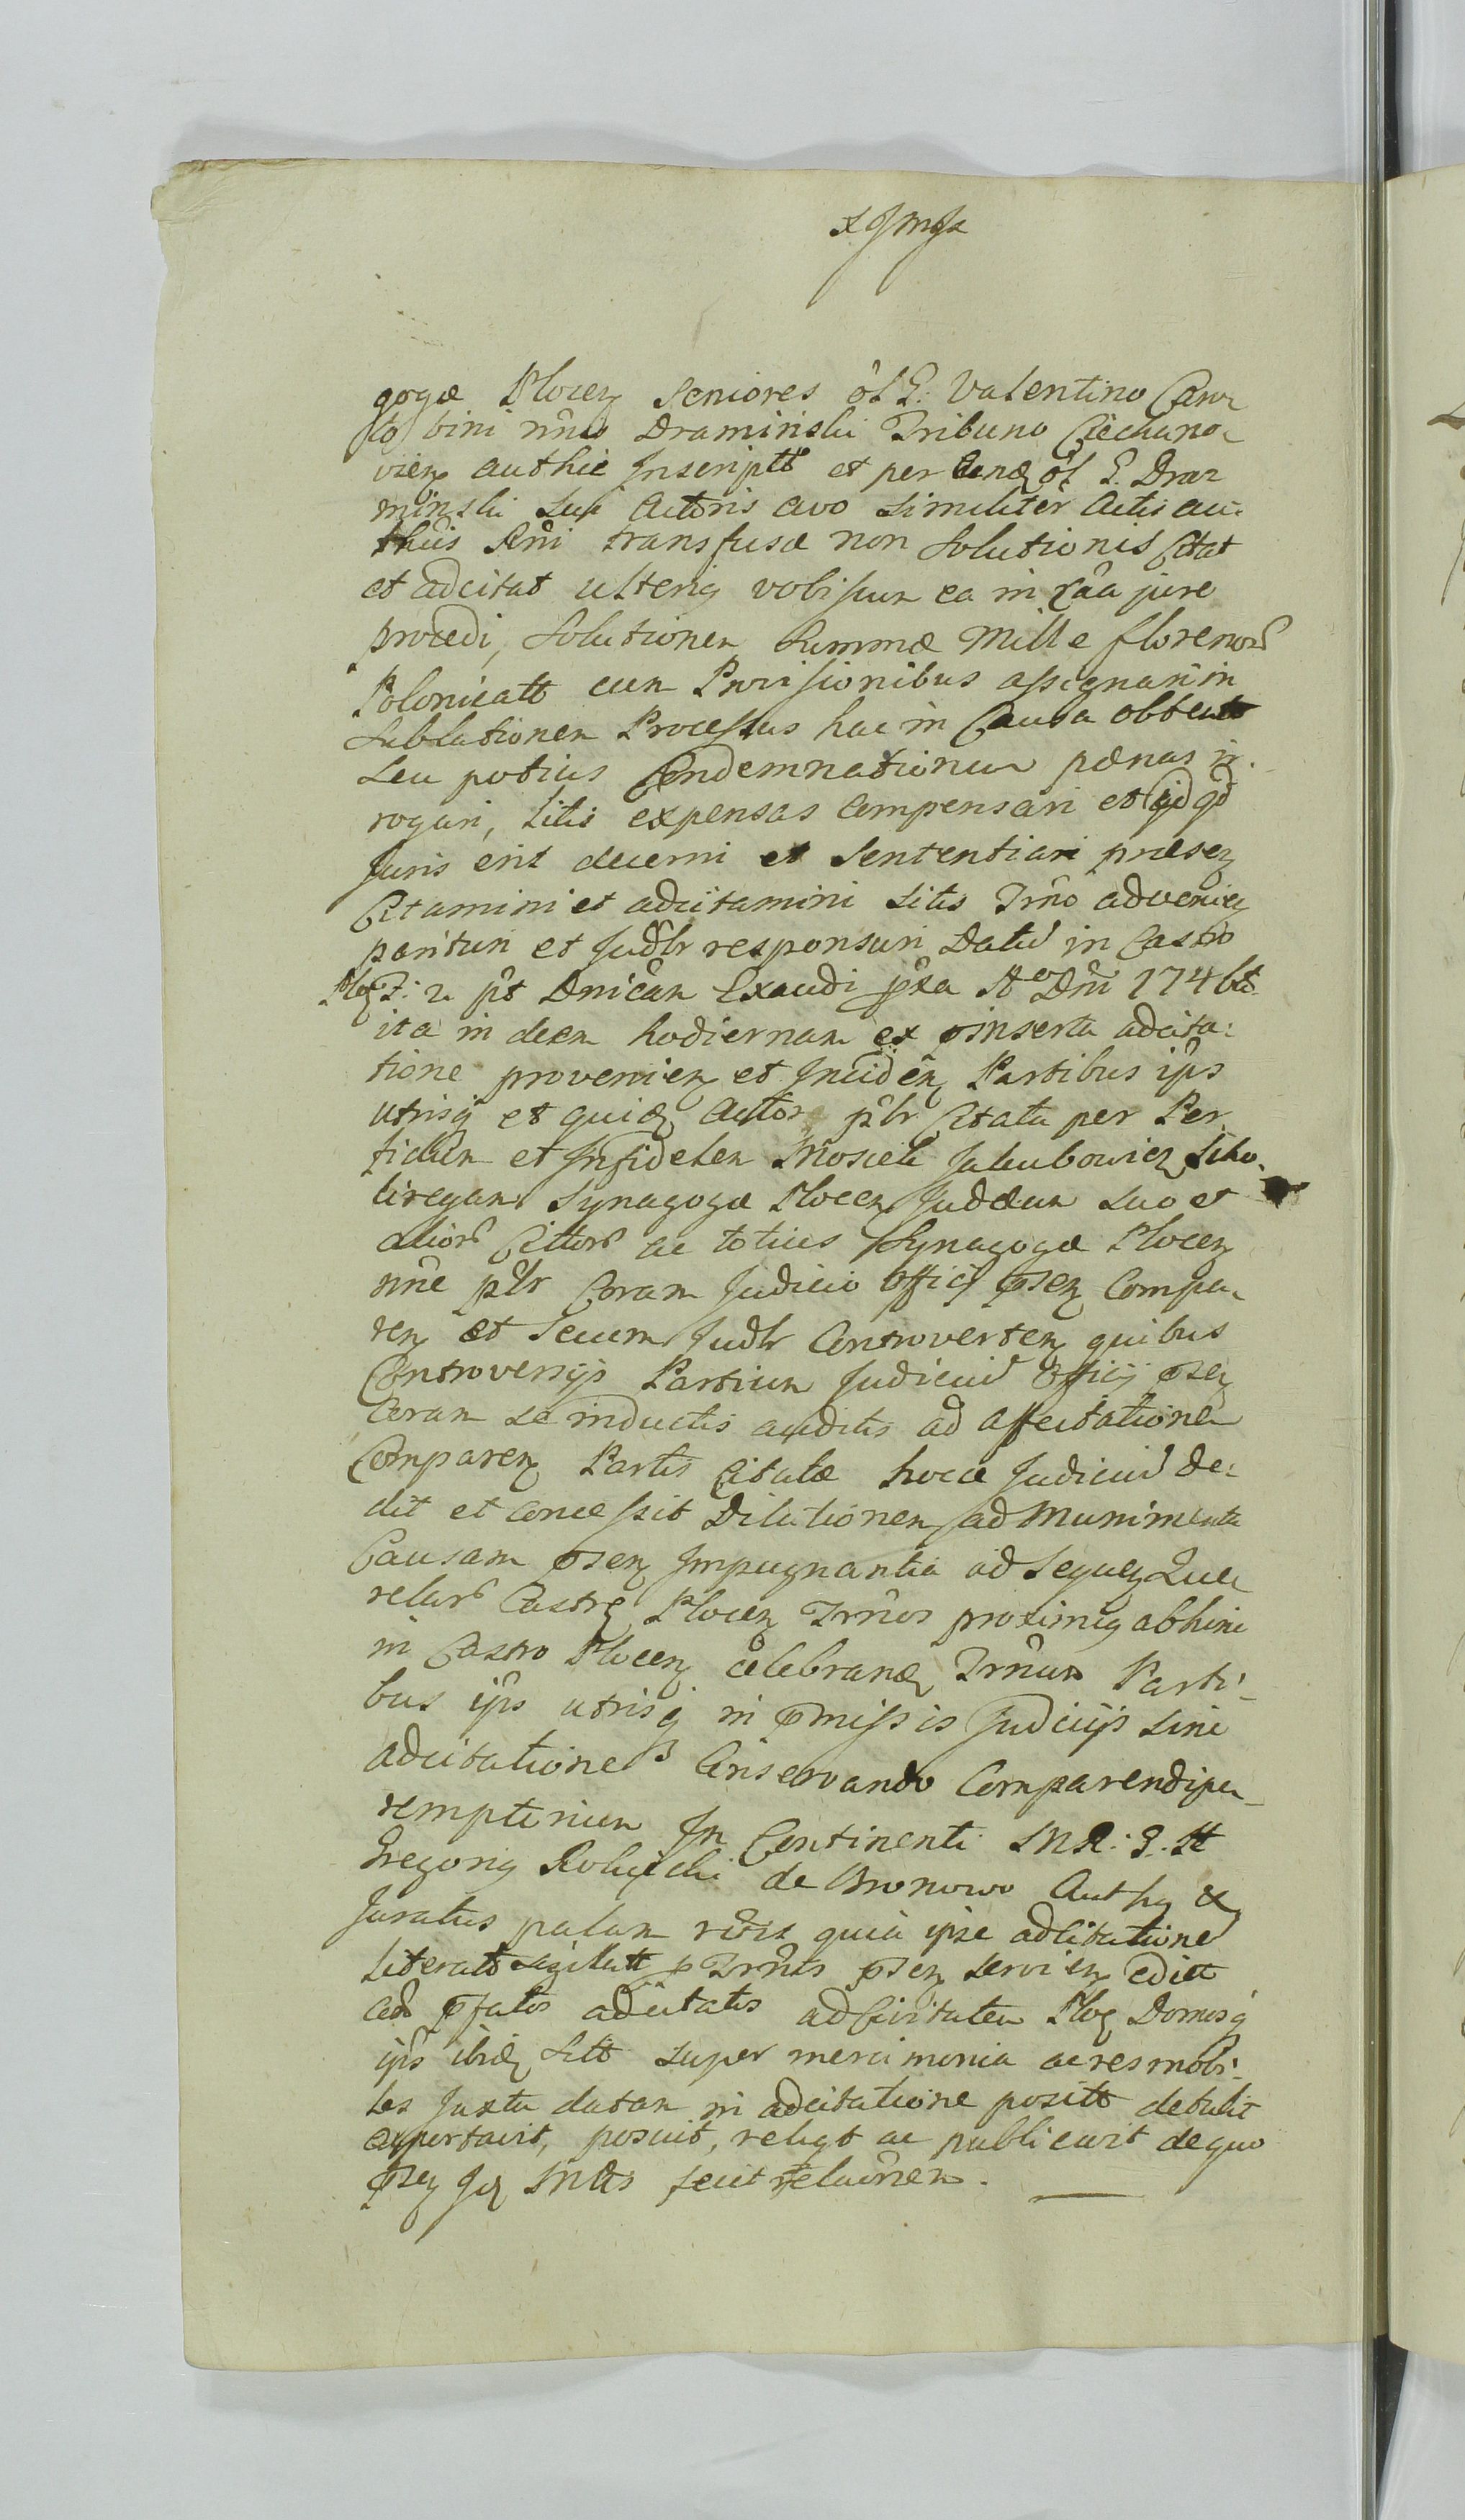 gogæ Plocen Seniores ol G: Valentino Caro
lo bini nñis Dramiński Tribuno Ciechano
vien authce Inscriptt et per eund ol G. Dra
miński Sui Actoris avo similiter Actis au:
thcis Rñi transfusæ non Solutionis Citat
et adcitat ulterig vobiscum ea in rãa jure
procedi, Solutionem Summæ Mille florenor
Polonicatt cum Provisionibus assignari in
Sublationem Processus hac in Causa obtent
Seu potius Condemnationum pænas ir
rogari, Litis expensas Compensari et id qd
Juris erit decerni et Sententiari præsen
Citamini et adcitamini Sitis Trño advenien
parituri et Judlr responsuri Datū in Castro
Ploc F: 2 pt Dnicam Exaudi pxa Ao Dni 174
ita in diem hodiernam ex pinserta adcita:
tione provenien et Inciden Partibus ips
utrisq et quid Actor plr Citata per Per
fidum et Infidelem Mosiek Jakubowicz Scho
liregam Synagogæ Plocen Judæum Suo et
alior Cittor ac totius Synagogæ Plocen
nñe plr Coram Judicio Officij psen Compa
ren et Secum Judlr Controverten quibus
Controversijs Partium Judiciū Officij psen
Coram se inductis auditis ad affectationem
Comparen Partis Citatæ hocce Judiciū de:
dit et concessit Dilationem ad Munimenta
Causam psen Impugnantia ad Sequen Que
relar Castren Plocen Trños proximig abhinc
in Castro Plocen celebrand Trñum Parti
bus ips utrisq in pmissis Judicijs sine
adcitatione Conservando Comparendi pe
remptorium In Continenti MR: G. A
Gregorig Roluski de Bronowo Authg &
Juratus palam rclt quia ipse adcitatione
Literatt Sigillatt p Trñis psen servien edictt
ad pfatos adcitatos ad Civitatem Ploc Domosq
ips ibid Sitt super mercimonia ac res mobi
les Juxta datam in adcitatione positt detulit
apportavit, posuit, reliqt ac publicavit de quo
psen Jq Mtis fecit relaõnem.